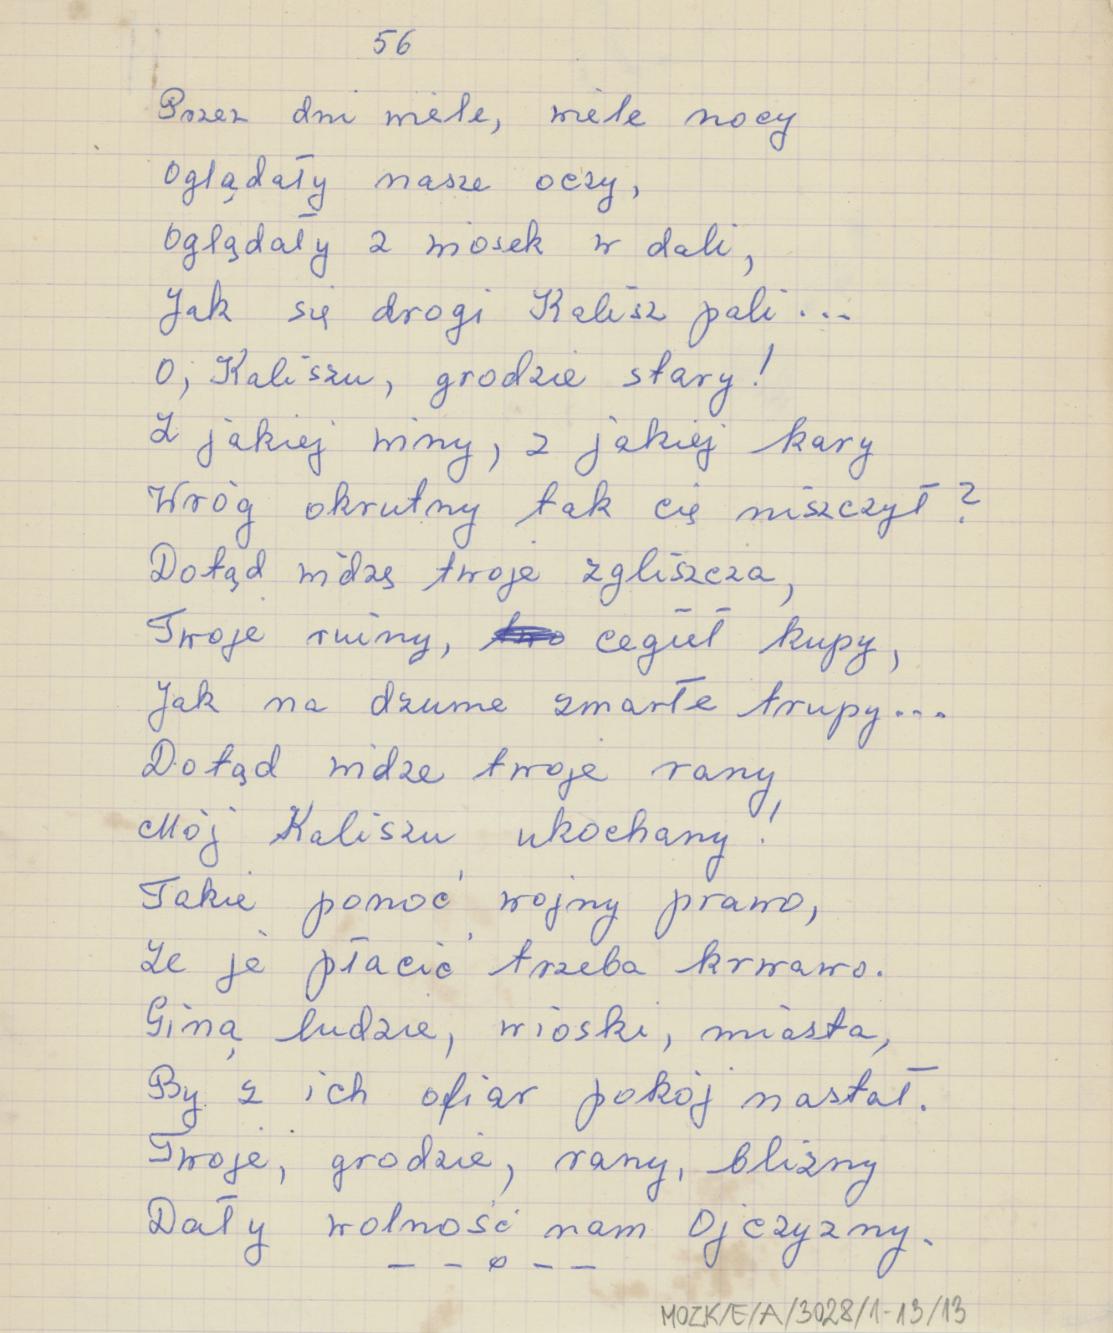 56
Przez dni wiele, wiele nocy
Oglądały nasze oczy,
Oglądały z wiosek w dali,
Jak się drogi Kalisz pali...
O, Kaliszu, grodzie stary!
Z jakiej winy, z jakiej kary
Wróg okrutny tak cię niszczył?
Dotąd widzę twoje zgliszcza,
Twoje ruiny, cegieł kupy,
Jak na dżumę zmarłe trupy...
Dotąd widzę twoje rany
Mój Kaliszu ukochany!
Takie ponoć wojny prawo,
Że je płacić trzeba krwawo.
Giną ludzie, wioski, miasta,
By z ich ofiar pokój nastał.
Twoje, grodzie, rany, blizny
Dały wolność nam Ojczyzny.
— – o – —
MOZK/E/A/3028/1-13/13